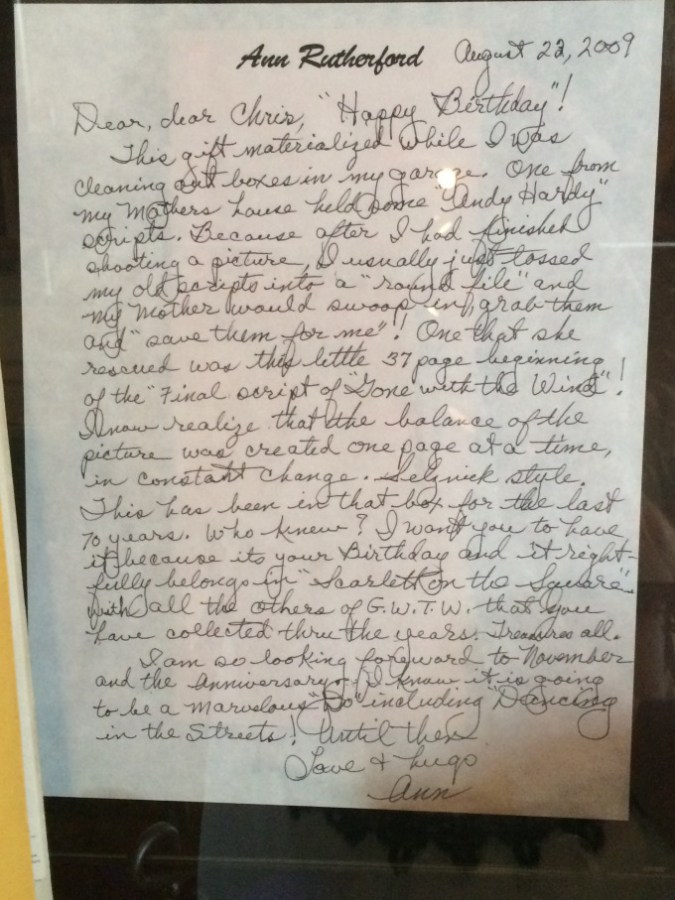 Ann Rutherford August 22, 2009
Dear, dear Chris, "Happy Birthday"!
This gift materialized while I was
cleaning out boxes in my garage. One from
my Mothers house held some "Andy Hardy"
scripts. Because after I had finished
shooting a picture, I usually just tossed
my old scripts into a "round file" and
my Mother would swoop in, grab them
and "save them for me"! One that she
rescued was this little 37 page beginning
of the "Final script of "Gone with the Wind"!
I now realize that the balance of the
picture was created one page at a time,
in constant change. Selznick style.
This has been in that box for the last
70 years. Who knew? I want you to have
it because its your Birthday and it right-
fully belongs in "Scarlett on the Square"
with all the others of G.W.T.W. that you
have collected thru the years. Treasures all.
I am so looking foreward to November
and the anniversary. I know it is going
to be a marvelous "Do" including "Dancing
in the Streets! Until then
Love & hugs
Ann